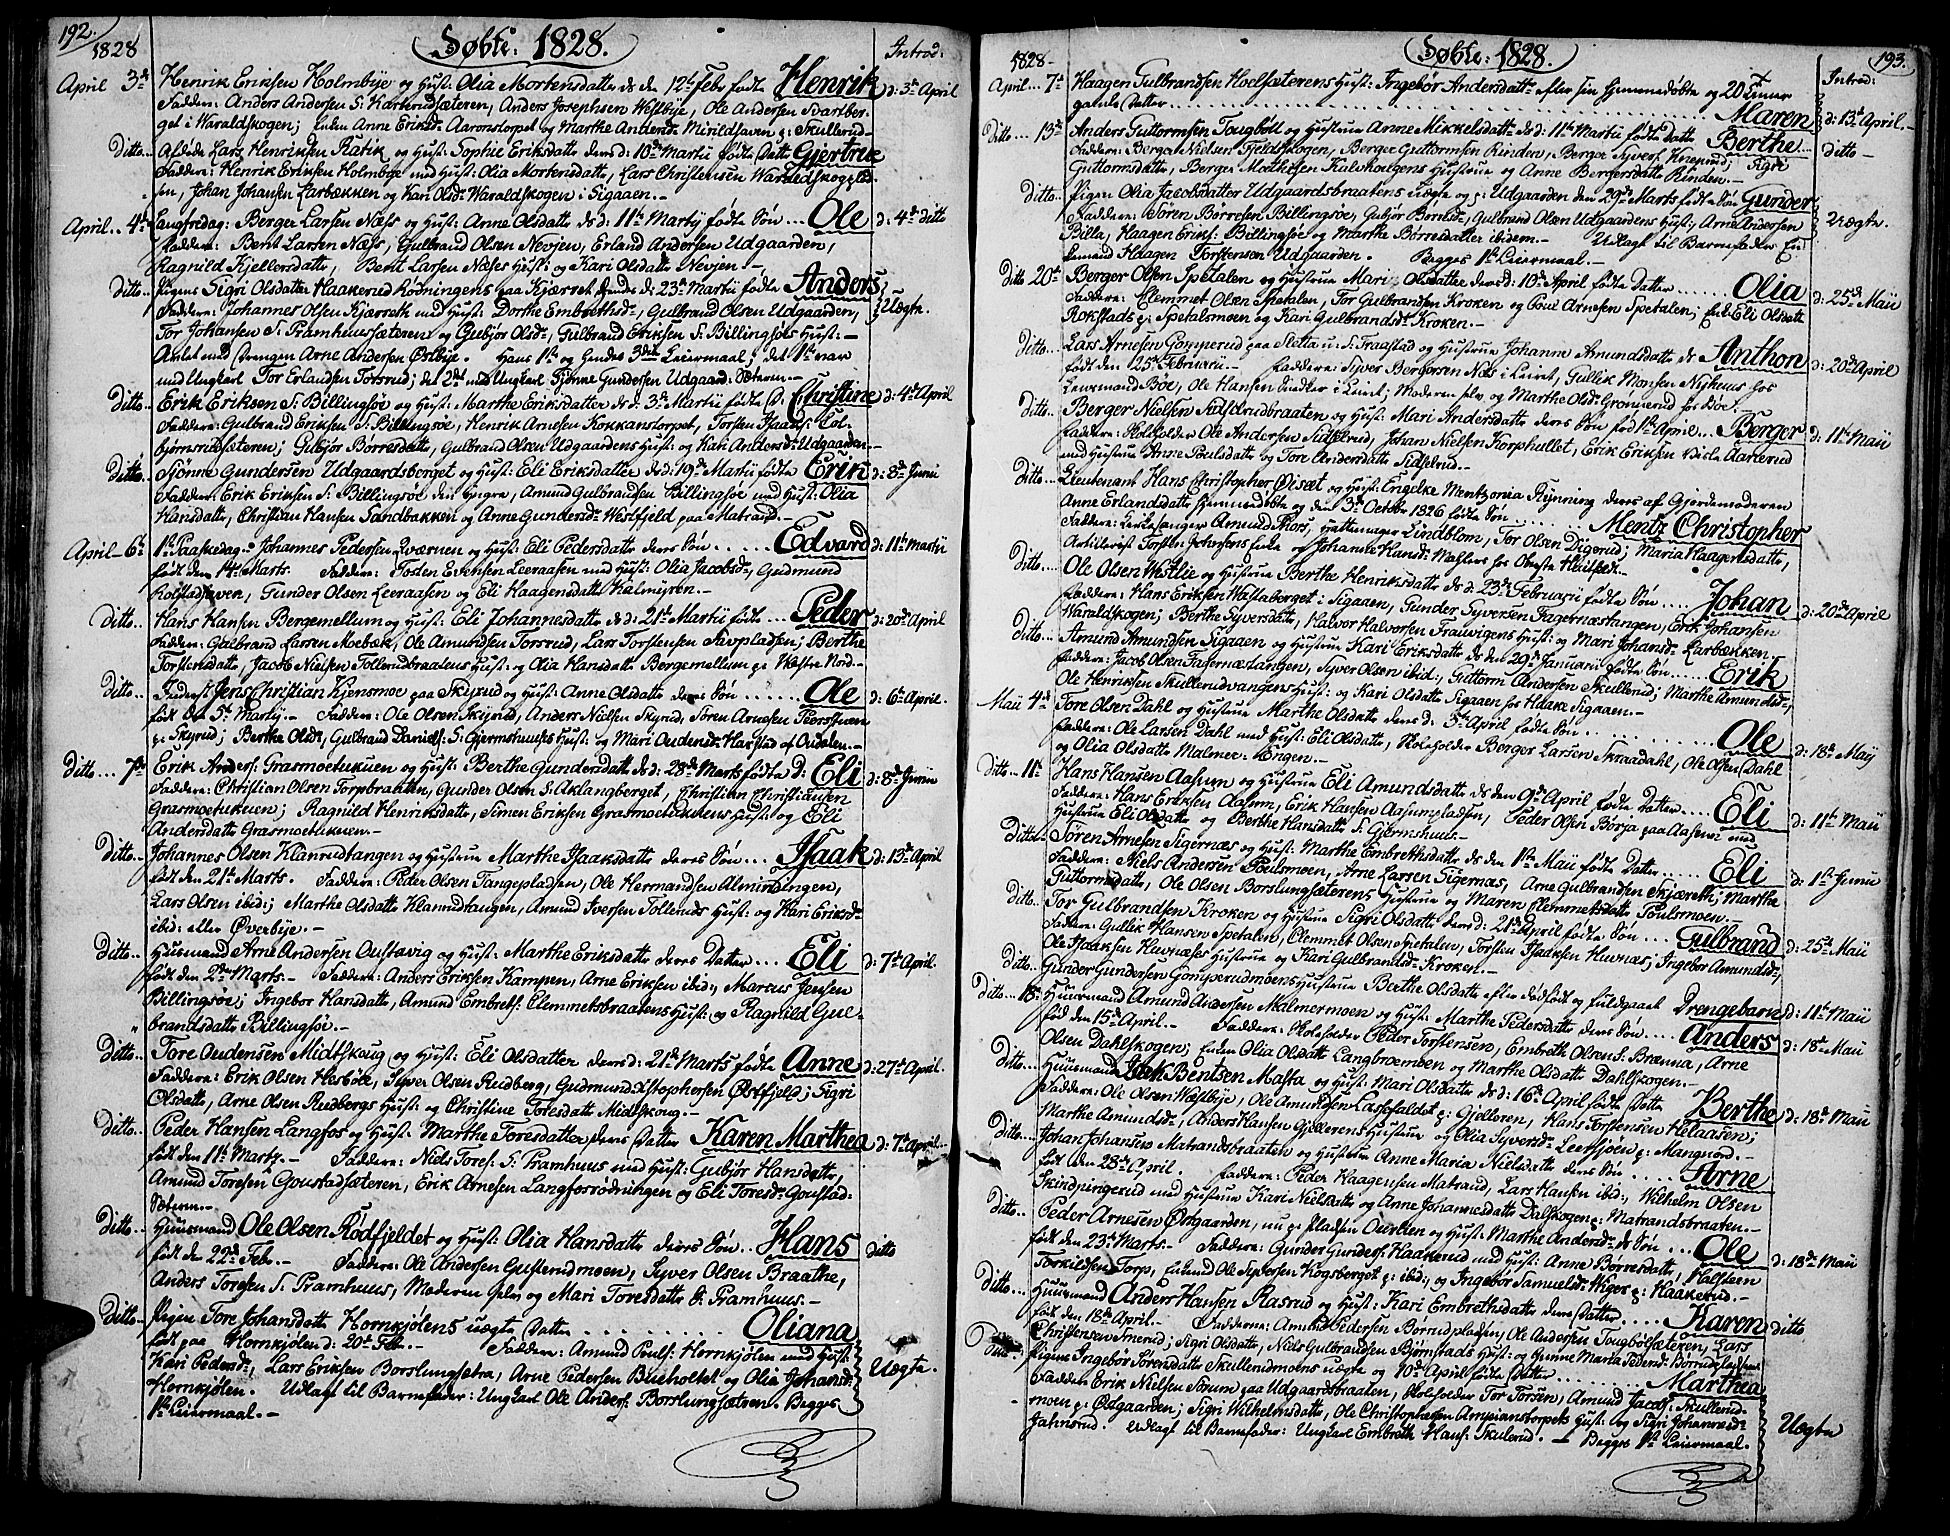 192.
1828
Døbte: 1828.
Introd:
April 3de Henrik Eriksen Holmbye og Hust: Olia Mortensdatte ds den 12te Febr fødte Henrik d: 3de April
Faddere: Anders Andersen S. Anders Josephsen Westbye, Ole Andersen Svartber-
get i Waraldskogen; Enken Anne Eriksd: Aaronstorpet og Marthe Andersd: Skullerud
Ditto.. Afdøde Lars Henriksen og Hust: Sophie Eriksdatte deres d: 10de Martii fødte Datte Gjertrue
Faddere: Henrik Eriksen Holmbye med Hust: Olia Mortensdatte, Lars Christensen
sen, Johan Johansen Larbækken og Kari Olsd: Waraldskogen i Sigaaen.-
April.. 4de Langfredag: Berger Larsen Næss og Hust: Anne Olsdatte ds den 11te Martij fødte Søn... Ole d: 4de ditto
Faddere: Bent Larsen Næss, Gulbrand Olsen Nevjen, Erland Andersen Udgaarden,
Ragnild Kjellersdatte, Bent Larsen Næses Hust: og Kari Olsdatte Nevjen.-
Ditto.. Pigens Sigri Olsdatte Haakerud paa Kjærret d: 23de Martii fødte Anders Uægte.
Faddere: Johannes Olsen Kjærreth med Hust: Dorthe Embrethsd:, Gulbrand Olsen Udgaarden,
Tor Johansen S. Pramhuussæteren og Gubjør Olsd:, Gulbrand Eriksen S: Billingsøes Hust:-
Avlet med Drengen Arne Andersen Østbye. Hans 1ste og hendes 3die Leiermaal; det 1ste var
med Ungkarl Tor Erlandsen Torsrud; det 2det med Ungkarl Sjønne Gundersen Udgaard: Sæteren.-
Ditto.. Erik Eriksen S: Billingsøe og Hust: Marthe Eriksdatter ds d: 3de Martii fødte D. Christine d: 4de April
Faddere: Gulbrand Eriksen S. Billingsøe, Henrik Arnesen Kokkanstorpet, Torsten Isaachs: Col-
bjørnsrudsæteren; Gubjør Børresdatte, Gulbrand Olsen Udgaardens Hust: og Kari Andersd: Udgaarden.-
Ditto.. Sjønne Gundersen Udgaardsberget og Hust: Eli Eriksdatter ds d: 19de Martii fødte Erik d: 8de Junii
Faddere: Erik Eriksen S: Billingsøe den Yngre, Amund Gulbrandsen Billingsøe med Hust: Olia
Hansdatte, Christian Hansen Sandbakken og Anne Gundersd: Westfjeld paa Matrand.-
April-6te 1ste Paaskedag.- Johannes Pedersen Qværnen og Hust: Eli Pedersdatte deres Søn...... Edvard d: 11te Martii
født den 14de Marts. Faddere: Tosten Evensen Leeraasen med Hust: Olia Jacobsd:, Gudmund
Kolstadhaven, Gunder Olsen Leeraasen og Eli Haagensdatte Kalmyren.-
Ditto.. Hans Hansen Bergemellum og Hust: Eli Johannesdatte ds d: 21de Martii fødte ... Peder d: 20de April
Faddere: Gulbrand Larsen Moebæk, Ole Amundsen Torsrud, Lars Torstensen Sævpladsen; Berthe
Torstensdatte, Jacob Nielsen Tollerudbraatens Hust: og Olia Hansdatte Bergemellum
Ditto.. Jens Christian Kjensmoe paa Skyrud og Hust: Anne Olsdatte deres Søn....... Ole d: 6te April.
født den 5te Martij.- Faddere: Ole Olsen Skyrud, Anders Nielsen Skyrud, Søren Arnesen
Skyrud; Berthe Olsd:, Gulbrand Daniels: S: Gjermshuuses Hust: og Mari Oudensd: Harstad af Oudalen.-
Ditto... 7de Erik Anders: Grasmoetukuen og Hust: Berthe Gundersdatte ds d: 28de Marts fødte D: Eli d: 8de Junii
Faddere: Christian Olsen Torpbraatten, Gunder Olsen S: Aklangberget, Christian Christiansen
Grasmoetukuen; Ragnild Henriksdatte, Simen Eriksen Grasmoetukuens Hust: og Eli
Andersdatte Grasmoetukuen.-
Ditto.. Johannes Olsen Klanrudtangen og Hustrue Marthe Isaaksdatte deres Søn... Isaak d: 13de April
født den 21de Marts. Faddere: Peder Olsen Tangepladsen, Ole Hermandsen Almindingen,
Lars Olsen ibid:; Marthe Olsdatte Klanrudtangen, Amund Iversen Tolleruds Hust: og Kari Eriksd:
ibid: eller Øverbye.-
Ditto.. Huusmand Arne Andersen Oustavig og Hust: Marthe Eriksdatte deres Datter... Eli d: 7de April.
født den 2den Marts.- Faddere: Anders Eriksen Kampen, Arne Eriksen ibid:, Marcus Jensen
Billingsøe; Ingebor Hansdatte, Amund Embrets: Clemmetsbraatens Hust: og Ragnild Gul-
brandsdatte Billingsøe.-
Ditto.. Tore Oudensen Midtskoug og Hust: Eli Olsdatter deres d: 21de Marts fødte Anne d: 27de April.
Faddere: Erik Olsen Hesbøle, Syver Olsen Rudberg, Gudmund Xstophersen Østfjeld; Sigri
Olsdatte, Arne Olsen Rudbergs Hust: og Christine Toresdatte Midtskoug.-
Ditto.. Peder Hansen Langfos og Hust: Marthe Toresdatter deres Datter Karen Marthea d: 7de April...
født den 11te Marts.- Faddere: Niels Tores: S: Pramhuus med Hust: Gubjør Hansdatte,
Amund Toresen Goustadsæteren, Erik Arnesen Langfosrødningen og Eli Toresd: Goustad:
Sæteren.-
Ditto.. Huusmand Ole Olsen Rødfjeldet og Hust: Olia Hansdatte deres Søn.. Hans ditto
født den 22de Feb.- Faddere: Ole Andersen Gusterudmoen, Syver Olsen Braathe,
Anders Toresen S: Pramhuus, Moderen selv og Mari Toresdatte S: Pramhuus.-
Ditto.. Pigen Tore Johansdatte Hornkjølens uægte Datter ......... Oliana
født paa Hornkjølen d: 20de Feb.- Faddere: Amund Pouls: Hornkjølen med Hust: Uægte.
Kari Pedersd:, Lars Eriksen Borslungsætra, Arne Pedersen Bueholtet og Olia Johansd:
Hornkjølen. Udlagt til Barnefader: Ungkarl Ole Anders: Borslungsætren. Begges
1ste Leiermaal.-
193.
1828-
Døbte: 1828.
Introd:
April... 7de Haagen Gulbrandsen Hoelsæterens Hust: Ingebør Andersdatte efter sin hjemmedøbte og 20 Timer
gamle Datter........................ Maren d: 13de April.-
Ditto... 13de Anders Guttormsen Tougbøll og Hustrue Anne Mikkelsdatte ds d: 11te Martii fødte Datte Berthe... ditto-
Faddere: Berger Nielsen Fjeldskogen, Berger Guttormsen Rinden, Berger Syvers: Knaprud; Sigri
Guttormsdatte, Berger Mathisen Kalsholgens Hustrue og Anne Bergersdatte Rinden.-
Ditto.. Pigen Olia Jacobsdatter Udgaardsbraatens uægte og p: Udgaarden den 29de Marts fødte Søn Gunder Uægte.
Faddere: Søren Børresen Billingsøe, Gubjør Børresd:, Gulbrand Olsen Udgaardens Hust:, Arne Andersen
Billa, Haagen Eriks: Billingsøe og Marthe Børresdatter ibidem.- Udlagt til Barnefader En-
kemand Haagen Torstensen Udgaarden. Begges 1ste Leiermaal.-
Ditto 20de Berger Olsen Spetalen og Hustrue Mari Olsdatte deres d: 10de April fødte Datter...... Olia d: 25de Maii
Faddere: Clemmet Olsen Spetalen, Tor Gulbrandsen Kroken og Poul Arnesen Spetalen; Enke Eli Olsdatte
Rokstads p: Spetalsmoen og Kari Gulbrandsd: Kroken.-
Ditto.. Lars Arnesen Gomperud paa Slatta u: S: Fraastad og Hustrue Johanne Amundsdatte ds Anthon d: 20de April
født den 25de Februarii.- Faddere: Syver Bergersen Næs i Leiret, Gullik Monsen Nyhuus hos
Leursmand Boe, Ole Hansen Snekker i Leiret; Moderen selv og Marthe Olsd: Grønnerud hos Boe.-
Ditto.. Berger Nielsen Sidselrudbraaten og Hust: Mari Andersdatte deres Søn fød 1ste April... Berger d: 11te Maii
Faddere: Skoleholder Ole Andersen Sidselrud, Johan Nielsen Korphullet, Erik Eriksen Aarlerud
med Hustrue Anne Poulsdatte og Tore Andersdatte Sidselrud.-
Ditto.. Lieutenant Hans Christopher Øiseet og Hust: Engelke Mentzonia Rynning deres af Gjordemoderen
Anne Erlandsdatte hjemmedøbte og den 3de October 1826 fødte Søn ...... Mentz Christopher
Faddere: Kirkesanger Amund Moss, Lindblom, Tor Olsen Digerud; Maria Haagensdatte,
Artillerist Torsten Johnsens Enke og Johanne
Ditto.. Ole Olsen Westlie og Hustrue Berthe Henriksdatte ds d: 23de Februarii fødte Søn.... Johan d: 20de April
Faddere: Hans Eriksen Wæstaberget i Sigaaen, Gunder Syversen Fagernæstangen, Erik Johansen
Waraldskogen; Berthe Syversdatte, Halvor Halvorsen Frauvigens Hust: og Mari Johansd: Larbækken.-
Ditto.. Amund Amundsen Sigaaen og Hustrue Kari Eriksdatte ds den 29de Januarii fødte Søn...... Erik
Faddere: Jacob Olsen Fagernæstangen, Syver Olsen ibid:, Guttorm Andersen Skullerud; Marthe Amundsd:,
Ole Henriksen Skullerudvangens Hust: og Kari Olsdatte Sigaaen hos Haakc Sigaaen.-
Maii 4de Tore Olsen Dahl og Hustrue Marthe Olsdatte deres d: 3de April fødte Søn ........... Ole d: 18de Maij
Faddere: Ole Larsen Dahl med Hust: Eli Olsdatte, Skoleholder Berger Larsen Skraadahl, Ole Olsen Dahl
og Olia Olsdatte Malmer-Engen.-
Ditto... 11te Hans Hansen Aasum og Hustrue Eli Amundsdatte ds den 9de April fødte Datter.... Eli d: 11te Maii
Faddere: Hans Eriksen Aasum, Erik Hansen Aasumpladsen, Peder Olsen Børja paa Aasum med
Hustrue Eli Olsdatte og Berthe Hansdatte S: Gjermshuus.-
Ditto.. Søren Arnesen Sigernæs og Hust: Marthe Embrethsdatte ds den 1ste Maii fødte Datter.... Eli d: 1ste Junii
Faddere: Niels Andersen Poulsmoen, Arne Larsen Sigernæs, Arne Gulbrandsen Skjæreth; Marthe
Guttormsdatte, Ole Olsen Borslungsæterens Hustrue og Maren Clemmetsdatte Poulsmoen.-
Ditto.. Tor Gulbrandsen Kroken og Hustrue Sigri Olsdatte deres d: 21de April fødte Søn .... Gulbrand d: 25de Maii
Faddere: Gullek Hansen Spetalen, Clemmet Olsen Spetalen, Torsten Isaaksen Huvnæs; Ingebor Amundsd:,
Ole Isaaksen Huvnæses Hustrue og Kari Gulbrandsd: Kroken.-
Ditto.. Gunder Gundersen Gomperudmoens Hustrue Berthe Olsdatte efter dødfødt og fuldgaaet Drengebarn d: 11te Maii
Ditto. 18de Huusmand Amund Andersen Malmermoen og Hust: Marthe Pedersdatte deres Søn ..... Anders d: 18de Maii
fød den 15de April.- Faddere: Skoleholder Peder Torstensen, Embreth Olsen S: Brænna, Arne
Olsen Dahlskogen; Enken Olia Olsdatte Langbroemoen og Marthe Olsdatte Dahlskogen.-
Ditto.. Huusmand Erik Bentsen Masta og Hust: Mari Olsdatte ds d: 16de April fødte Datte Berthe d: 18de Maii
Faddere: Ole Olsen Wæstbye, Ole Amundsen Lassefaldet p: Gjelloren, Hans Torstensen Helaasen;
Marthe Amundsd:, Anders Hansen Gjellerens Hustrue og Olia Syversd: Leersjøen p: Mangnord.-
Ditto.. Johan Johansen Matrandsbraaten og Hustrue Anne Maria Nielsdatte deres Søn ..... Arne
født den 28de April. Faddere: Peder Haagensen Matrand, Lars Hansen ibid:, Wilhelm Olsen
Skindpungerud med Hustrue Kari Nielsdatte og Anne Johannesdatte Dalskogen p: Matrandsbraaten.-
Ditto.. Peder Arnesen Østgaarden, nu p: Pladsen Ourlien og Hust: Marthe Andersd: ds Søn ... Ole d: 18de Maii
født den 23de Marts.- Faddere: Gunder Gunders: Haakerud med Hust: Anne Børresdatte, Halsteen
Torkildsen Torp, Enkemd Ole Syversen Kogsberget p: ibid:, og Ingebør Samuelsd: Wiger p: Haakerud.-
Ditto.. Huusmand Anders Hansen Rasrud og Hust: Kari Embrethsdatte deres Datter.... Karen ditto
født den 18de April.- Faddere: Amund Pedersen Børrudpladsen, Ole Andersen Tougbølsæteren, Lars
Christensen Smerud; Sigri Olsdatte, Niels Gulbrandsen Bjørnstads Hust: og Gunne Marta Pedersd: Børrudpladsen.
Ditto.. Pigen Ingebør Sørensdatte Skullerudmoens uægte og 10de April fødte Datter........... Marthea
Faddere: Erik Nielsen Sørum paa Udgaardsbraaten, Skoleholder Tor Torsen, Amund Jacobs: Skullerud-
moen p: Østgaarden; Sigri Wilhelmsdatte, Ole Christophersen Ampianstorpets Hust: og Sigri Johannesd:
Jahnsrud. Udlagt til Barnefader: Ungkarl Embreth Hans: Skulerud. - Begges 1ste Leiermaal. Uægte